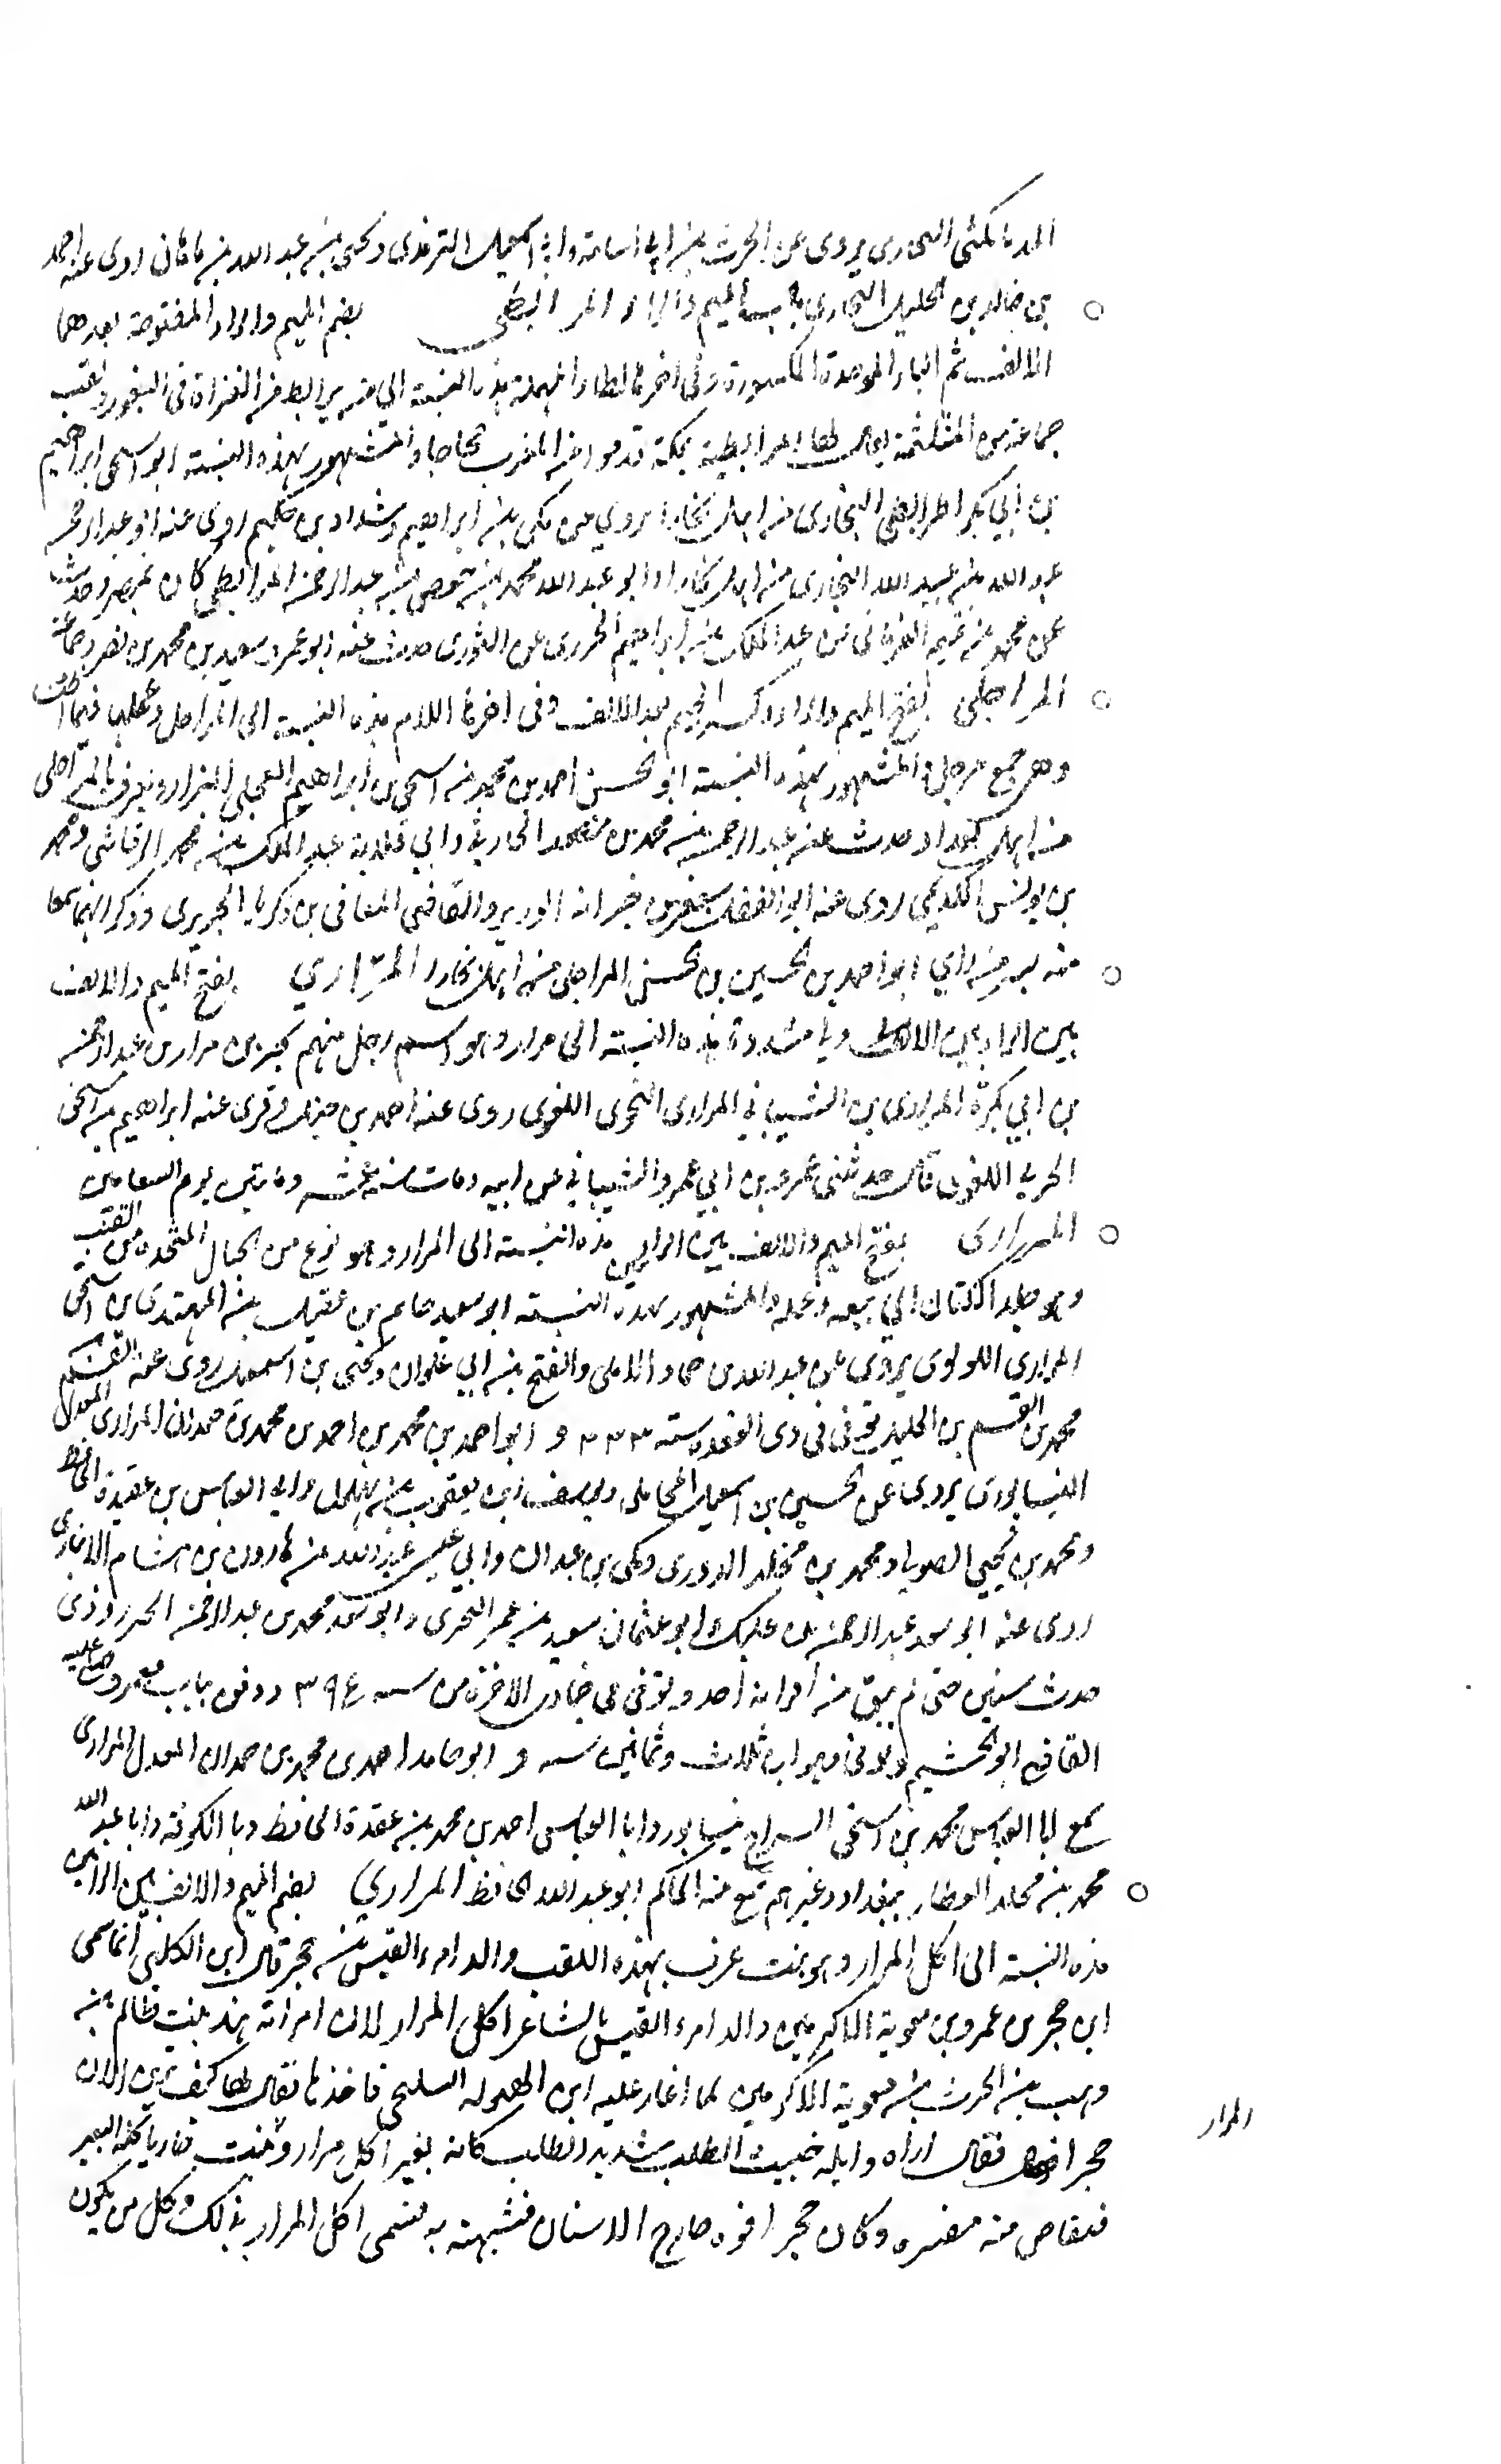 المديانكثى البخارى يروى عن الحرث بن ابى اسامة وابى اسمعيل الترمذى ويحيى بن عبد الله بن ماهان روى عنه احمد
بن خالد بن الخليل البخارى باب الميم والراء المرابطى بضم الميم والراء المفتوحة بعدهما
الالف ثم الباء الموحدة المكسورة وفى اخرها الطاء المهملة هذه النسبة الى من يرابط من الغزاة فى الثغور ولقب
جماعة من المتلثمة يقال لها المرابطية بمكة قدموا من المغرب حجاجا والمشهور بهذه النسبة ابو اسحق ابراهيم
بن ابي بكر المرابطى البخارى من اهل بخارا يروي عن مكى بن ابراهيم وشداد بن حكيم روى عنه ابو عبد الرحمن
عبد الله بن عبيد الله البخارى من اهل بخارا وابو عبد الله محمد بن حفص بن عبد الرحمن المرابطى كان بمصر وحدث
عن محمد بن تميم الفريابى عن عبد الملك بن ابراهيم الجدى عن الثورى حدث عنه ابو عمرو سعيد بن محمد بن نصر وجماعة
المراجلى بفتح الميم والراء وكسر الجيم بعد الالف وفى اخرها اللام هذه النسبة الى المراجل وعملها فيما اظن
وهى جمع مرجل والمشهور بهذه النسبة ابو الحسن احمد بن محمد بن اسحق بن ابراهيم العجلى البزار ويعرف بالمراجلى
من اهل بغداد حدث عن عبد الرحمن بن محمد بن منصور الحارثى وابي قلابة عبد الملك بن محمد الرقاشى ومحمد
بن يونس الكديمي روى عنه ابو الفضل جعفر بن خنزابة الوزير والقاضى المعافى بن زكريا الجريرى وذكر انهما سمعا
منه بسر من راي ابو احمد بن الحسين بن الحسن المراجلى من اهل بخارا المرّاري بفتح الميم والالف
بين الراءين الاولى ويا مشددة هذه النسبة الى مرار وهو اسم رجل منهم
بن ابي بكرة الشيبانى المرارى النحوى اللغوى روى عنه احمد بن حنبل وقرى عنه ابراهيم بن اسحق
الحربى اللغوى قال حدثنى عمرو بن ابي عمرو الشيبانى عن ابيه ومات سنة عشر ومائتين يوم السعانين
المرارى بفتح الميم والالف بين الراءين هذه النسبة الى المرار وهو نوع من الحبال المتخذة من القنب
وهو جلد الكتان الى بيعه وعمله والمشهور بهذه النسبة ابو سعيد حاتم بن عقيل بن المهتدى بن اسحق
المرارى اللولوى يروى عن عبد الله بن حماد الاملى والفتح بن ابي علوان ويحيى بن اسمعيل روى عنه القسم
محمد بن القسم بن الخليل توفى فى ذى القعدة سنة ٣٣٣ و ابو احمد بن محمد بن احمد بن محمد بن حمدان المرارى المعدل
النيسابورى يروى عن الحسين بن اسمعيل المحاملى ويوسف بن يعقوب بن بهلول وابى العباس بن عقدة الحافظ
ومحمد بن يحيى الصولى ومحمد بن مخلد الدورى ومكى بن عبدان وابي على عبد الله بن هارون بن هشام الانبارى
روى عنه ابو سعد عبد الرحمن بن عليك وابو عثمان سعيد بن محمد البحيرى وابو سعد محمد بن عبد الرحمن الجنزروذى
حدث سنين حتى لم يبق من اقرانه احد وتوفى فى جمادى الاخرة من سنة ٣٩٤ ودفن بباب معمر وصلى عليه
القاضى ابو الهيثم وتوفى وهو ابن ثلاث وثمانين سنة و ابو حامد احمد بن محمد بن حمدان المعدل المرارى
سمع ابا العباس محمد بن اسحق السراج بنيسابور وابا العباس احمد بن محمد بن عقدة الحافظ وبا الكوفة وابا عبد الله
محمد بن مخلد العطار ببغداد وغيرهم سمع منه الحاكم ابو عبد الله الحافظ المراري بضم الميم والالف بين الراءين
هذه النسبة الى اكل المرار وهو نبت عرف بهذه اللقب والد امرء القيس بن حجر قال ابن الكلبى انما سمى
ابن حجر بن عمرو بن معوية الاكرمين والد امرء القيس الشاعر اكل المرار لان امراته هند بنت ظالم بن
وهب بن الحرث بن معوية الاكرمين لما اغار عليه ابن الهبولة السليحى فاخذها فقال لها كيف ترين الان
حجرا فقالت اراه والله خبيث الطلب شديد الطالب كانه بعير اكل مرار ونبت تاكله البعير
فيتقلص منه مشفره وكان حجر افوه خارج الاسنان فشبهته به فسمى اكل المرار بذلك وكل من يكون
المرار